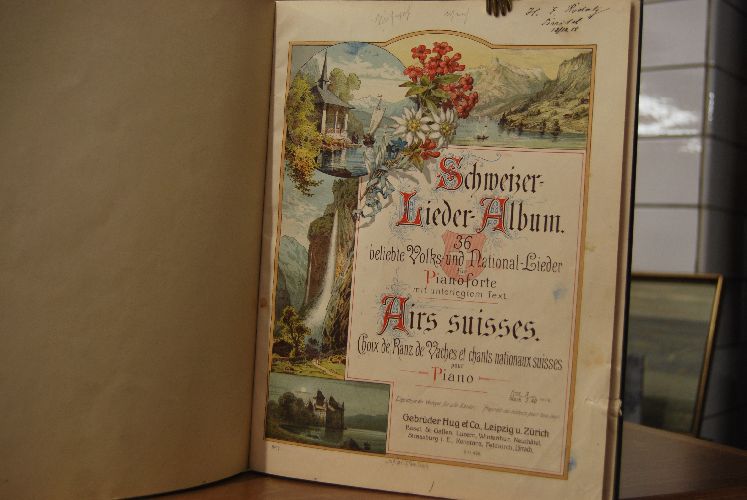 Schweizer-
Lieder-Album.
36
beliebte Volks-und National-Lieder
für
Pianoforte
mit unterlegtem Text
Airs suisses.
Choix de Ranz de Vaches et chants nationaux suisses
pour
Piano
Gebrüder Hug et Co., Leipzig u. Zürich
Basel, St. Gallen, Luzern, Winterthur, Neuchâtel,
Strassburg i. E., Konstanz, Feldkirch, Lörrach.